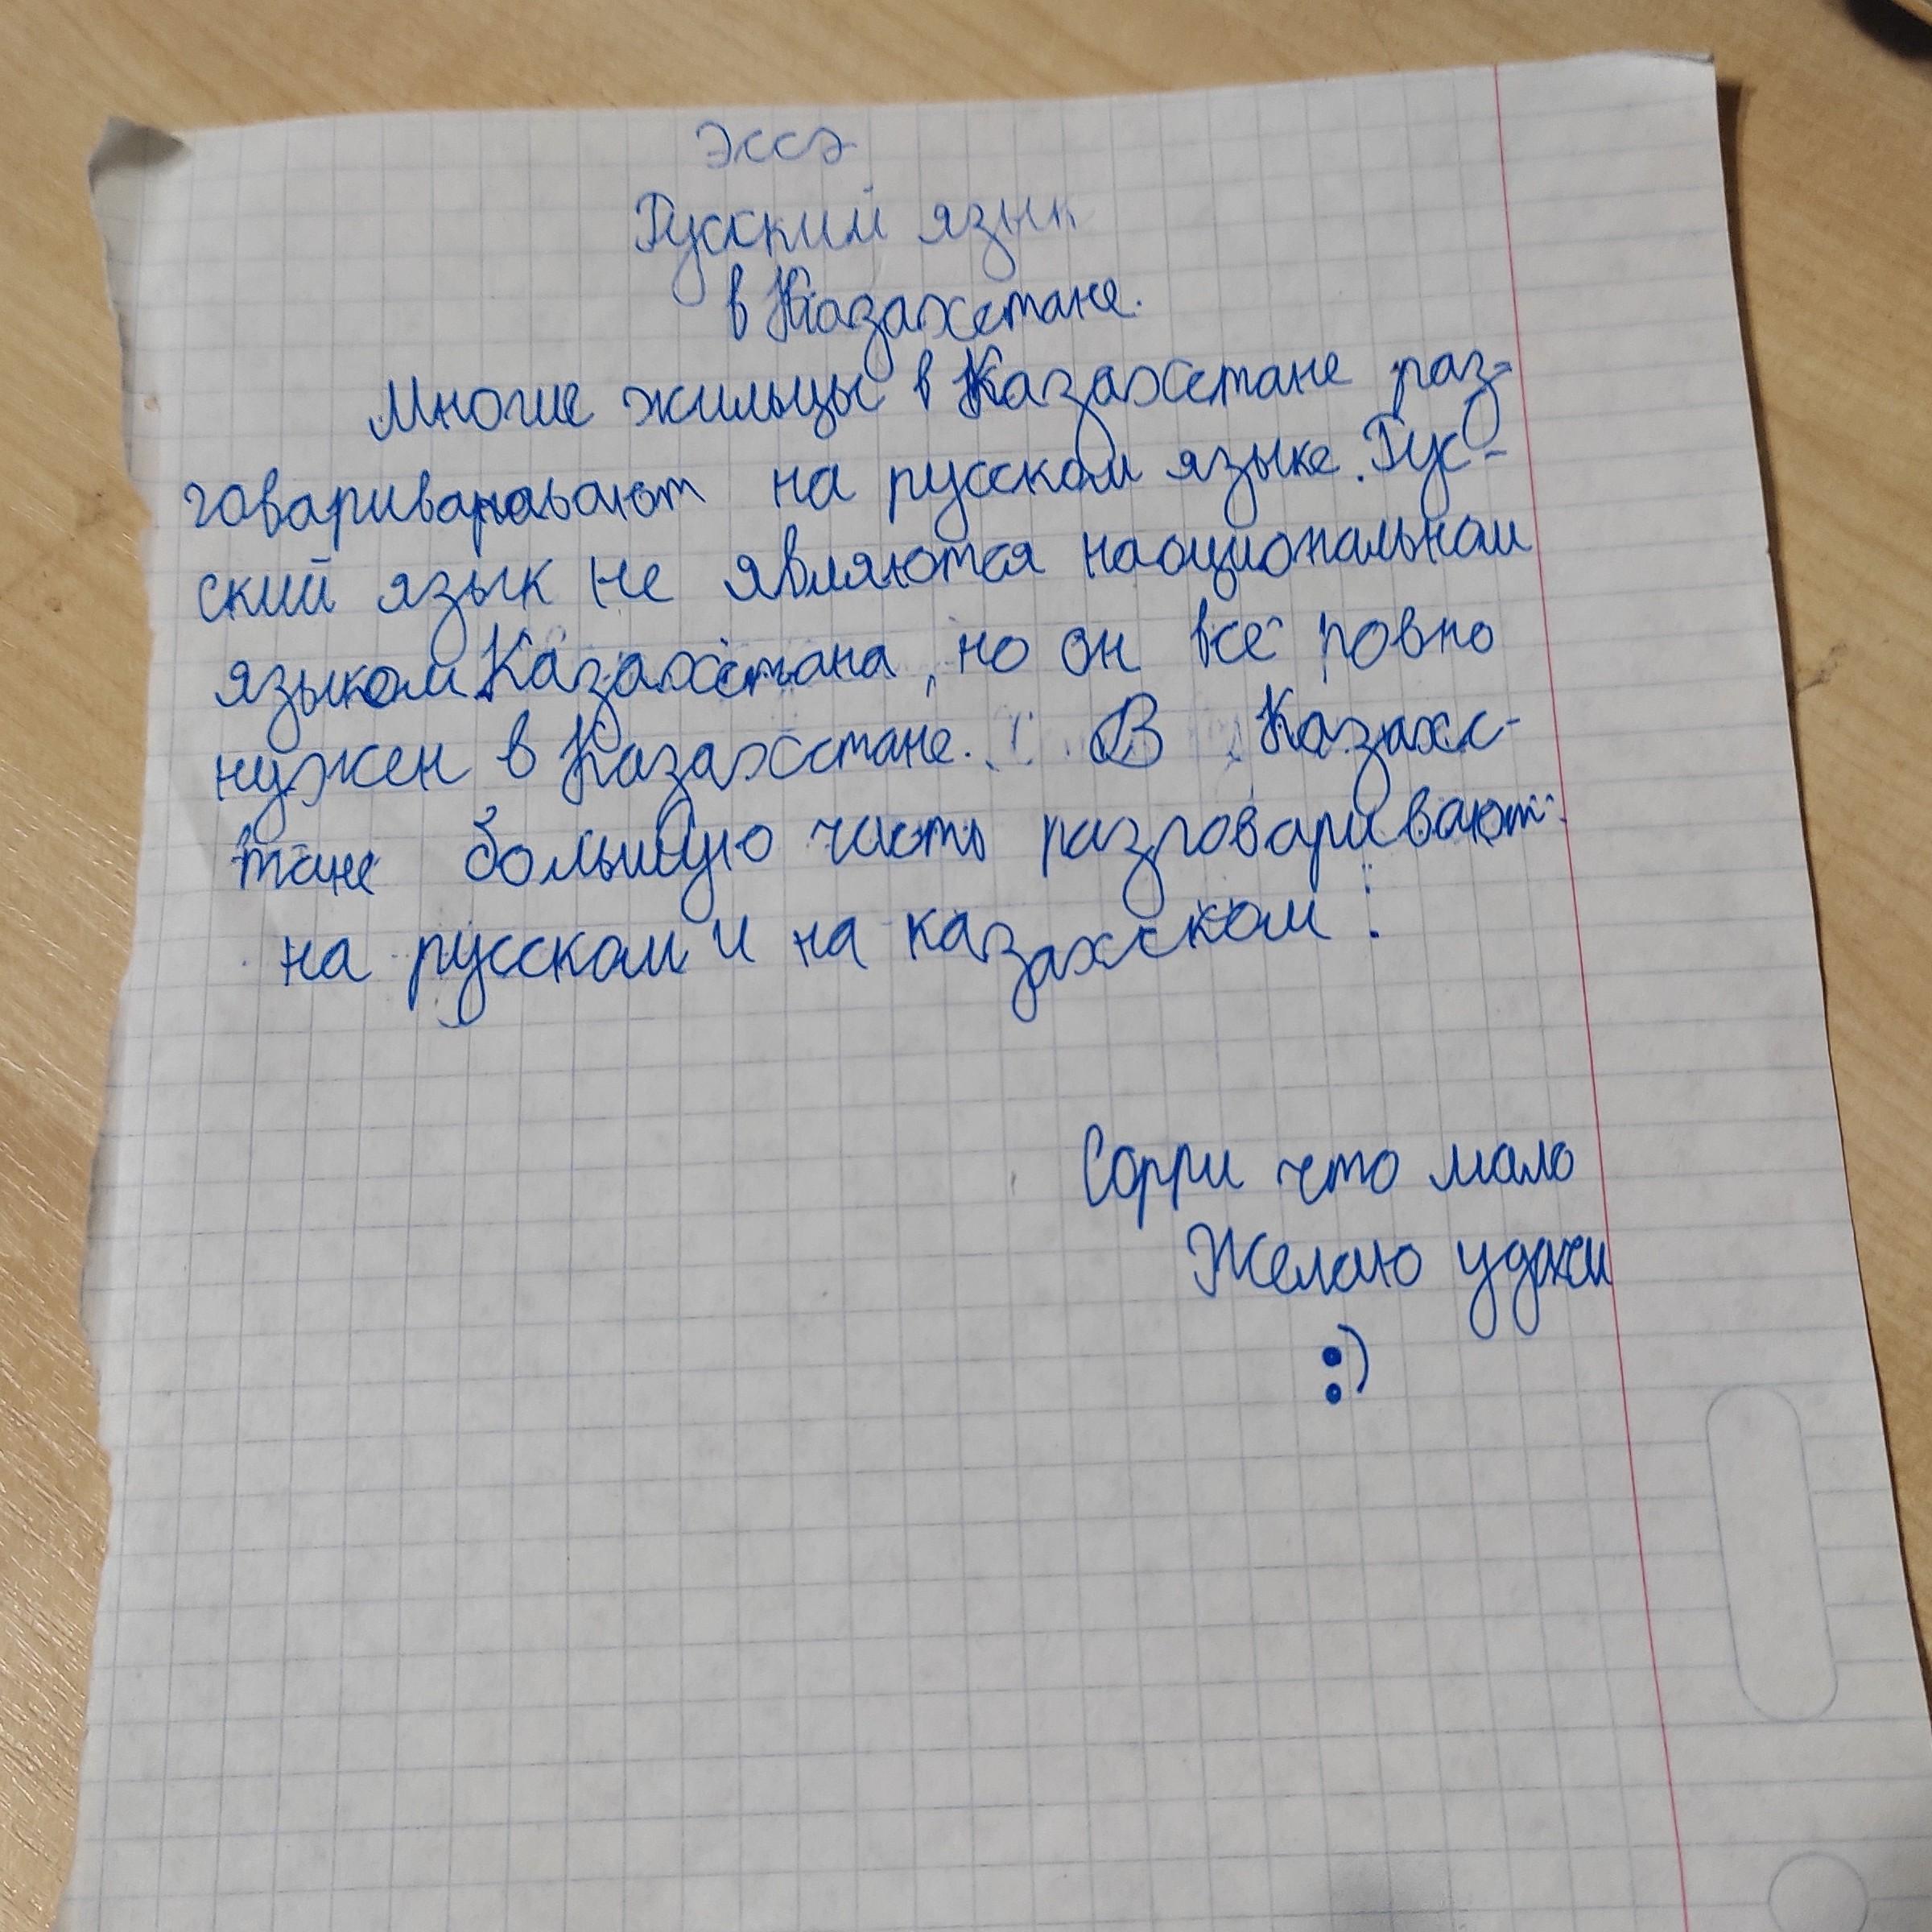 Эссэ
Русский язык
в Казахстане.
Многие жильцы в Казахстане раз-
говаривают на русском языке. Рус-
ский язык не являются национальном
языком Казахстана, но он всё ровно
нужен в Казахстане. В Казахс-
тане большую часть разговаривают
на русском и на казахском.
Сорри что мало
Желаю удачи
:)